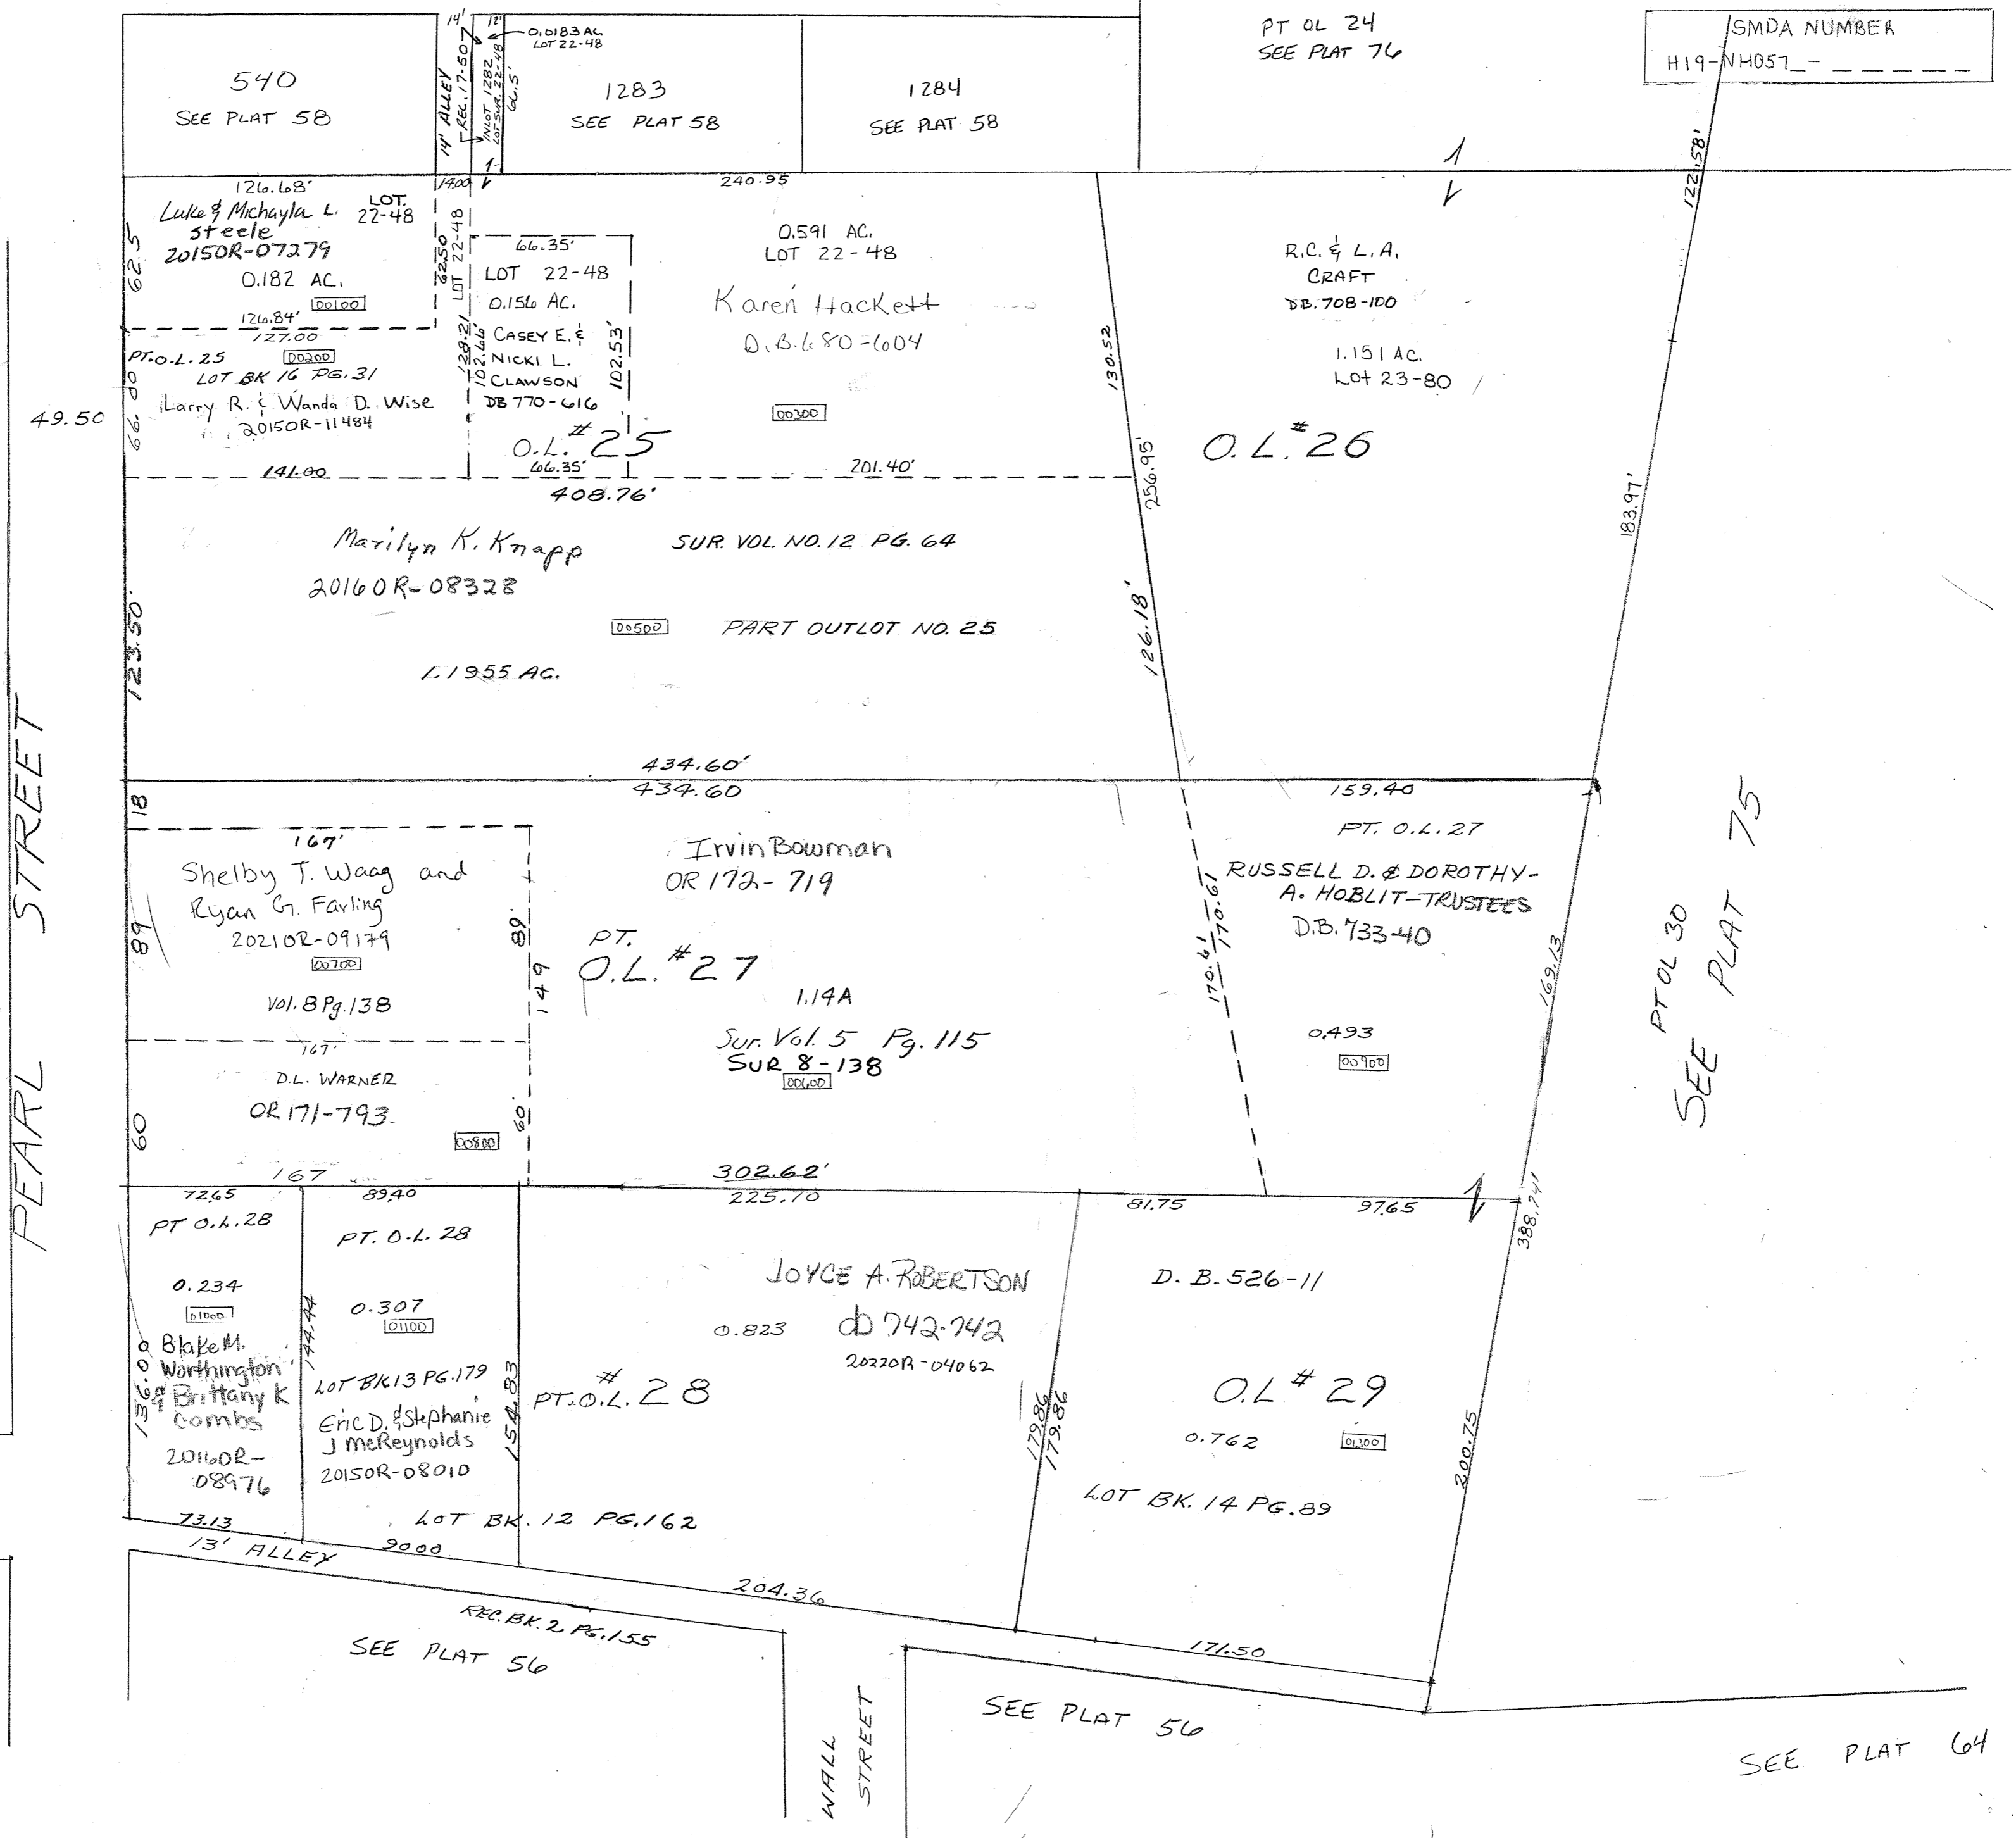 SMDA NUMBER
H19-NH057_-_ _ _ _ _
PT OL 24
SEE PLAT 76
540
SEE PLAT 58
14'
14' ALLEY
REC. 17-507
12'
0.0183 AC
LOT 22-48
INLOT 1282
LOT SUR. 22-48
66.5'
1283
SEE PLAT 58
1284
SEE PLAT 58
122.58'
126.68'
14.00
240.95
Luke & Michayla L.
Steele
LOT.
22-48
2015OR-07279
0.182 AC.
00100
62.5
62.50
LOT 22-48
126.84'
127.00
PT. O.L. 25
00200
LOT BK 16 PG. 31
Larry R. & Wanda D. Wise
2015OR-11484
66.00
49.50
141.00
128.21
102.66'
66.35'
LOT 22-48
0.156 AC.
CASEY E. &
NICKI L.
CLAWSON
DB 770-616
102.53'
O.L. # 25
66.35'
0.591 AC.
LOT 22-48
Karen Hackett
D.B. 680-604
00300
201.40'
408.76'
130.52
256.95'
R.C. & L.A.
CRAFT
DB. 708-100
1.151 AC.
Lot 23-80
O.L. # 26
183.97'
Marilyn K. Knapp
SUR. VOL. NO. 12 PG. 64
2016OR-08328
00500
PART OUTLOT NO. 25
1.1955 AC.
123.50'
126.18'
434.60'
434.60
159.40
PEARL STREET
18
167'
Shelby T. Waag and
Ryan G. Farling
2021OR-09179
00700
Vol. 8 Pg. 138
89
89'
149
167'
D.L. WARNER
OR 171-793
00800
60
60'
167
Irvin Bowman
OR 172-719
PT.
O.L. # 27
1.14A
Sur. Vol. 5 Pg. 115
SUR 8-138
00600
302.62'
170.61
170.61
PT. O.L. 27
RUSSELL D. & DOROTHY-
A. HOBLIT-TRUSTEES
D.B. 733-40
0.493
00900
169.13
PT OL 30
SEE PLAT 75
72.65
89.40
225.70
81.75
97.65
388.74'
PT O.L. 28
0.234
01000
Blake M.
Worthington
& Brittany K
Combs
2016OR-
08976
136.00
73.13
144.44
PT. O.L. 28
0.307
01100
LOT BK 13 PG. 179
Eric D. & Stephanie
J McReynolds
2015OR-08010
154.83
90.00
JOYCE A. ROBERTSON
0.823
db 742-742
2022OR-04062
PT. O.L. # 28
LOT BK. 12 PG. 162
204.36
179.86
179.86
D. B. 526-11
O.L # 29
0.762
01300
LOT BK. 14 PG. 89
200.75
171.50
13' ALLEY
REC. BK. 2 PG. 155
SEE PLAT 56
WALL
STREET
SEE PLAT 56
SEE PLAT 64